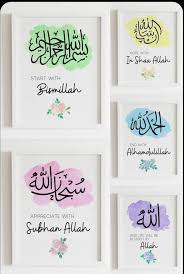 بسم الله الرحمن الرحيم
START WITH
Bismillah
سبحان الله
APPRECIATE WITH
Subhan Allah
إن شاء الله
HOPE WITH
In Shaa Allah
الحمد لله
END WITH
Alhamdulillah
الله
AND WE WILL BE
BLESSED BY
Allah